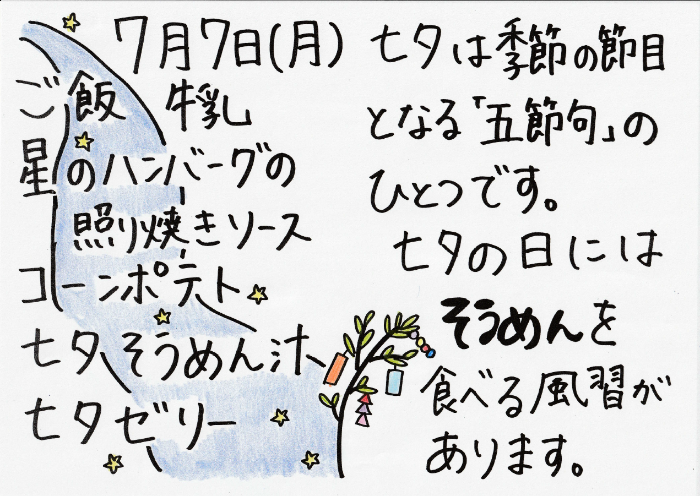 7月7日(月)
ご飯 牛乳
星のハンバーグの
照り焼きソース
コーンポテト
七夕そうめん汁
七夕ゼリー
七夕は季節の節目
となる「五節句」の
ひとつです。
七夕の日には
そうめんを
食べる風習が
あります。